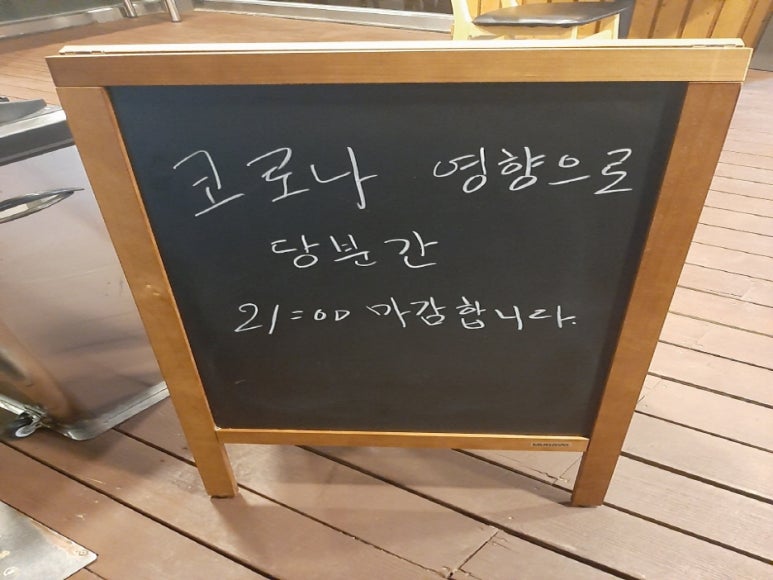 코로나 영향으로
당분간
21:00 마감합니다.